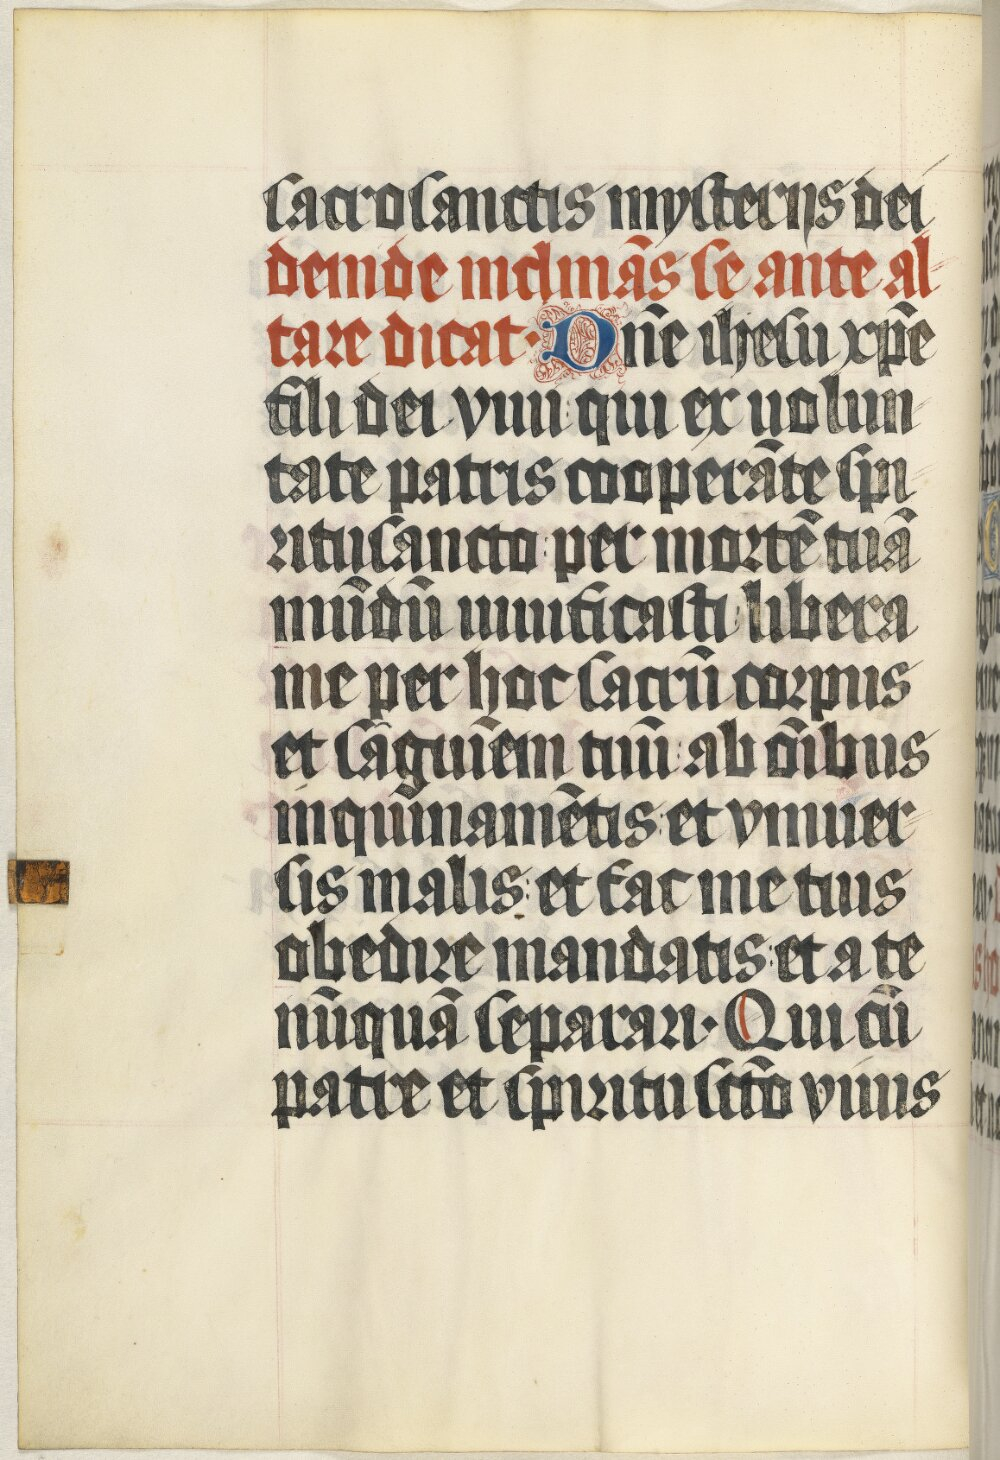 sacrosanctis mysterijs dei
deinde inclinãs se ante al
tare dicat· Dñe ihesu xp̃e
fili dei viui: qui ex uolun
tate patris cooperãte spi
ritusancto: per mortẽ tuã
mũdũ uiuificasti: libera
me per hoc sacrũ corpus
et sãguiẽm tuũ: ab oĩbus
inquinamẽtis: et vniuer
sis malis: et fac me tuis
obedire mandatis: et a te
nũquã separari· Qui cũ
patre et spiritu sctõ viuis